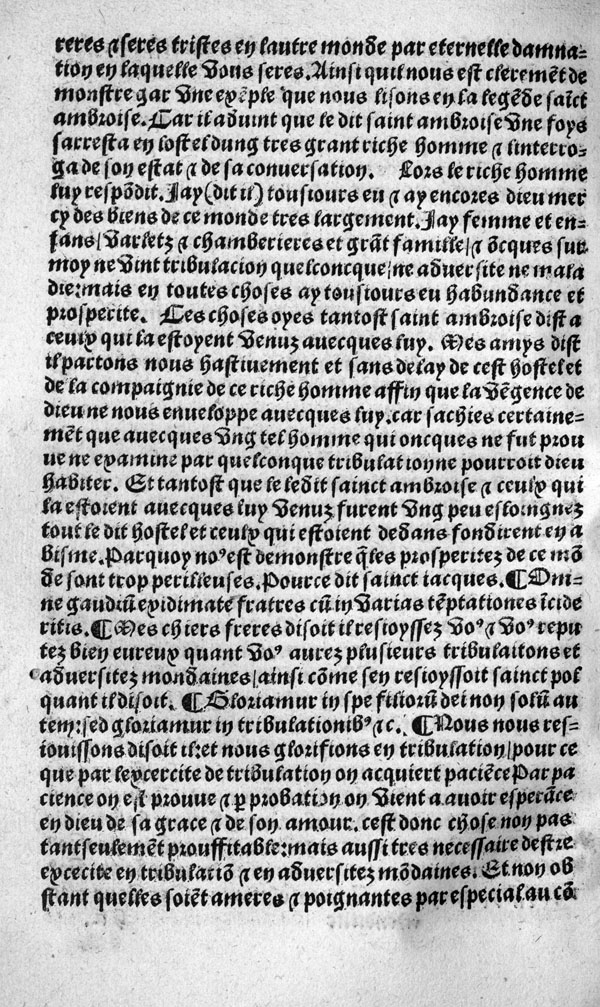 reres ⁊ seres tristes en lautre monde par eternelle damna-
tion en laquelle vous seres. Ainsi quil nous est cleremēt de
monstre gar vne exēple que nous lisons en la legēde saīct
ambroise. Car il aduint que le dit saint ambroise vne foys
sarresta en lostel dung tres grant riche homme ⁊ linterro-
ga de son estat ⁊ de sa conuersation. Lors le riche homme
luy respōdit. Jay (dit il) tousiours eu ⁊ ay encores dieu mer
cy des biens de ce monde tres largement. Jay femme et en-
fans/ varletz ⁊ chamberieres et grāt famille/ ⁊ ōcques sur
moy ne vint tribulacion quelconcque/ ne aduersite ne mala
die: mais en toutes choses ay tousiours eu habundance et
prosperite. Ces choses oyes tantost saint ambroise dist a
ceulx qui la estoyent venuz auecques luy. Mes amys dist
il partons nous hastiuement et sans delay de cest hostel et
de la compaignie de ce riche homme affin que la vēgence de
dieu ne nous enueloppe auecques luy. car sachies certaine-
mēt que auecques vng tel homme qui oncques ne fut prou
ue ne examine par quelconque tribulation ne pourroit dieu
habiter. Et tantost que le ledit sainct ambroise ⁊ ceulx qui
la estorent auecques luy venuz furent vng peu eslongnez
tout le dit hostel et ceulx qui estoient dedans fondirent en a
bisme. Parquoy noꝰ est demonstre q̄ les prosperitez de ce mō
de sont trop perilieuses. Pource dit sainct iacques. ¶ Om-
ne gaudiū exidimate fratres cū in varias tēptationes īcide
ritis. ¶ Mes chiers freres disoit il resioyssez voꝰ ⁊ voꝰ repu
tez bien eureux quant voꝰ aurez plusieurs tribulaitons et
aduersitez mondaines/ ainsi cōme sen resioyssoit sainct pol
quant il disoit. ¶ Gloriamur in spe filiorū dei non solū au
tem: sed gloriamur in tribulationibꝰ ⁊c. ¶ Nous nous res-
iouissons disoit il: et nous glorifions en tribulation/ pour ce
que par lexcercite de tribulation on acquiert paciēce Par pa
cience on est prouue ⁊ ꝑ probation on vient a auoir esperāce
en dieu de sa grace ⁊ de son amour. cest donc chose non pas
tantseulemēt prouffitable: mais aussi tres necessaire destre
excecite en tribulatiō ⁊ en aduersitez mōdaines. Et non ob
stant quelles soiēt ameres ⁊ poignantes par especial au cō